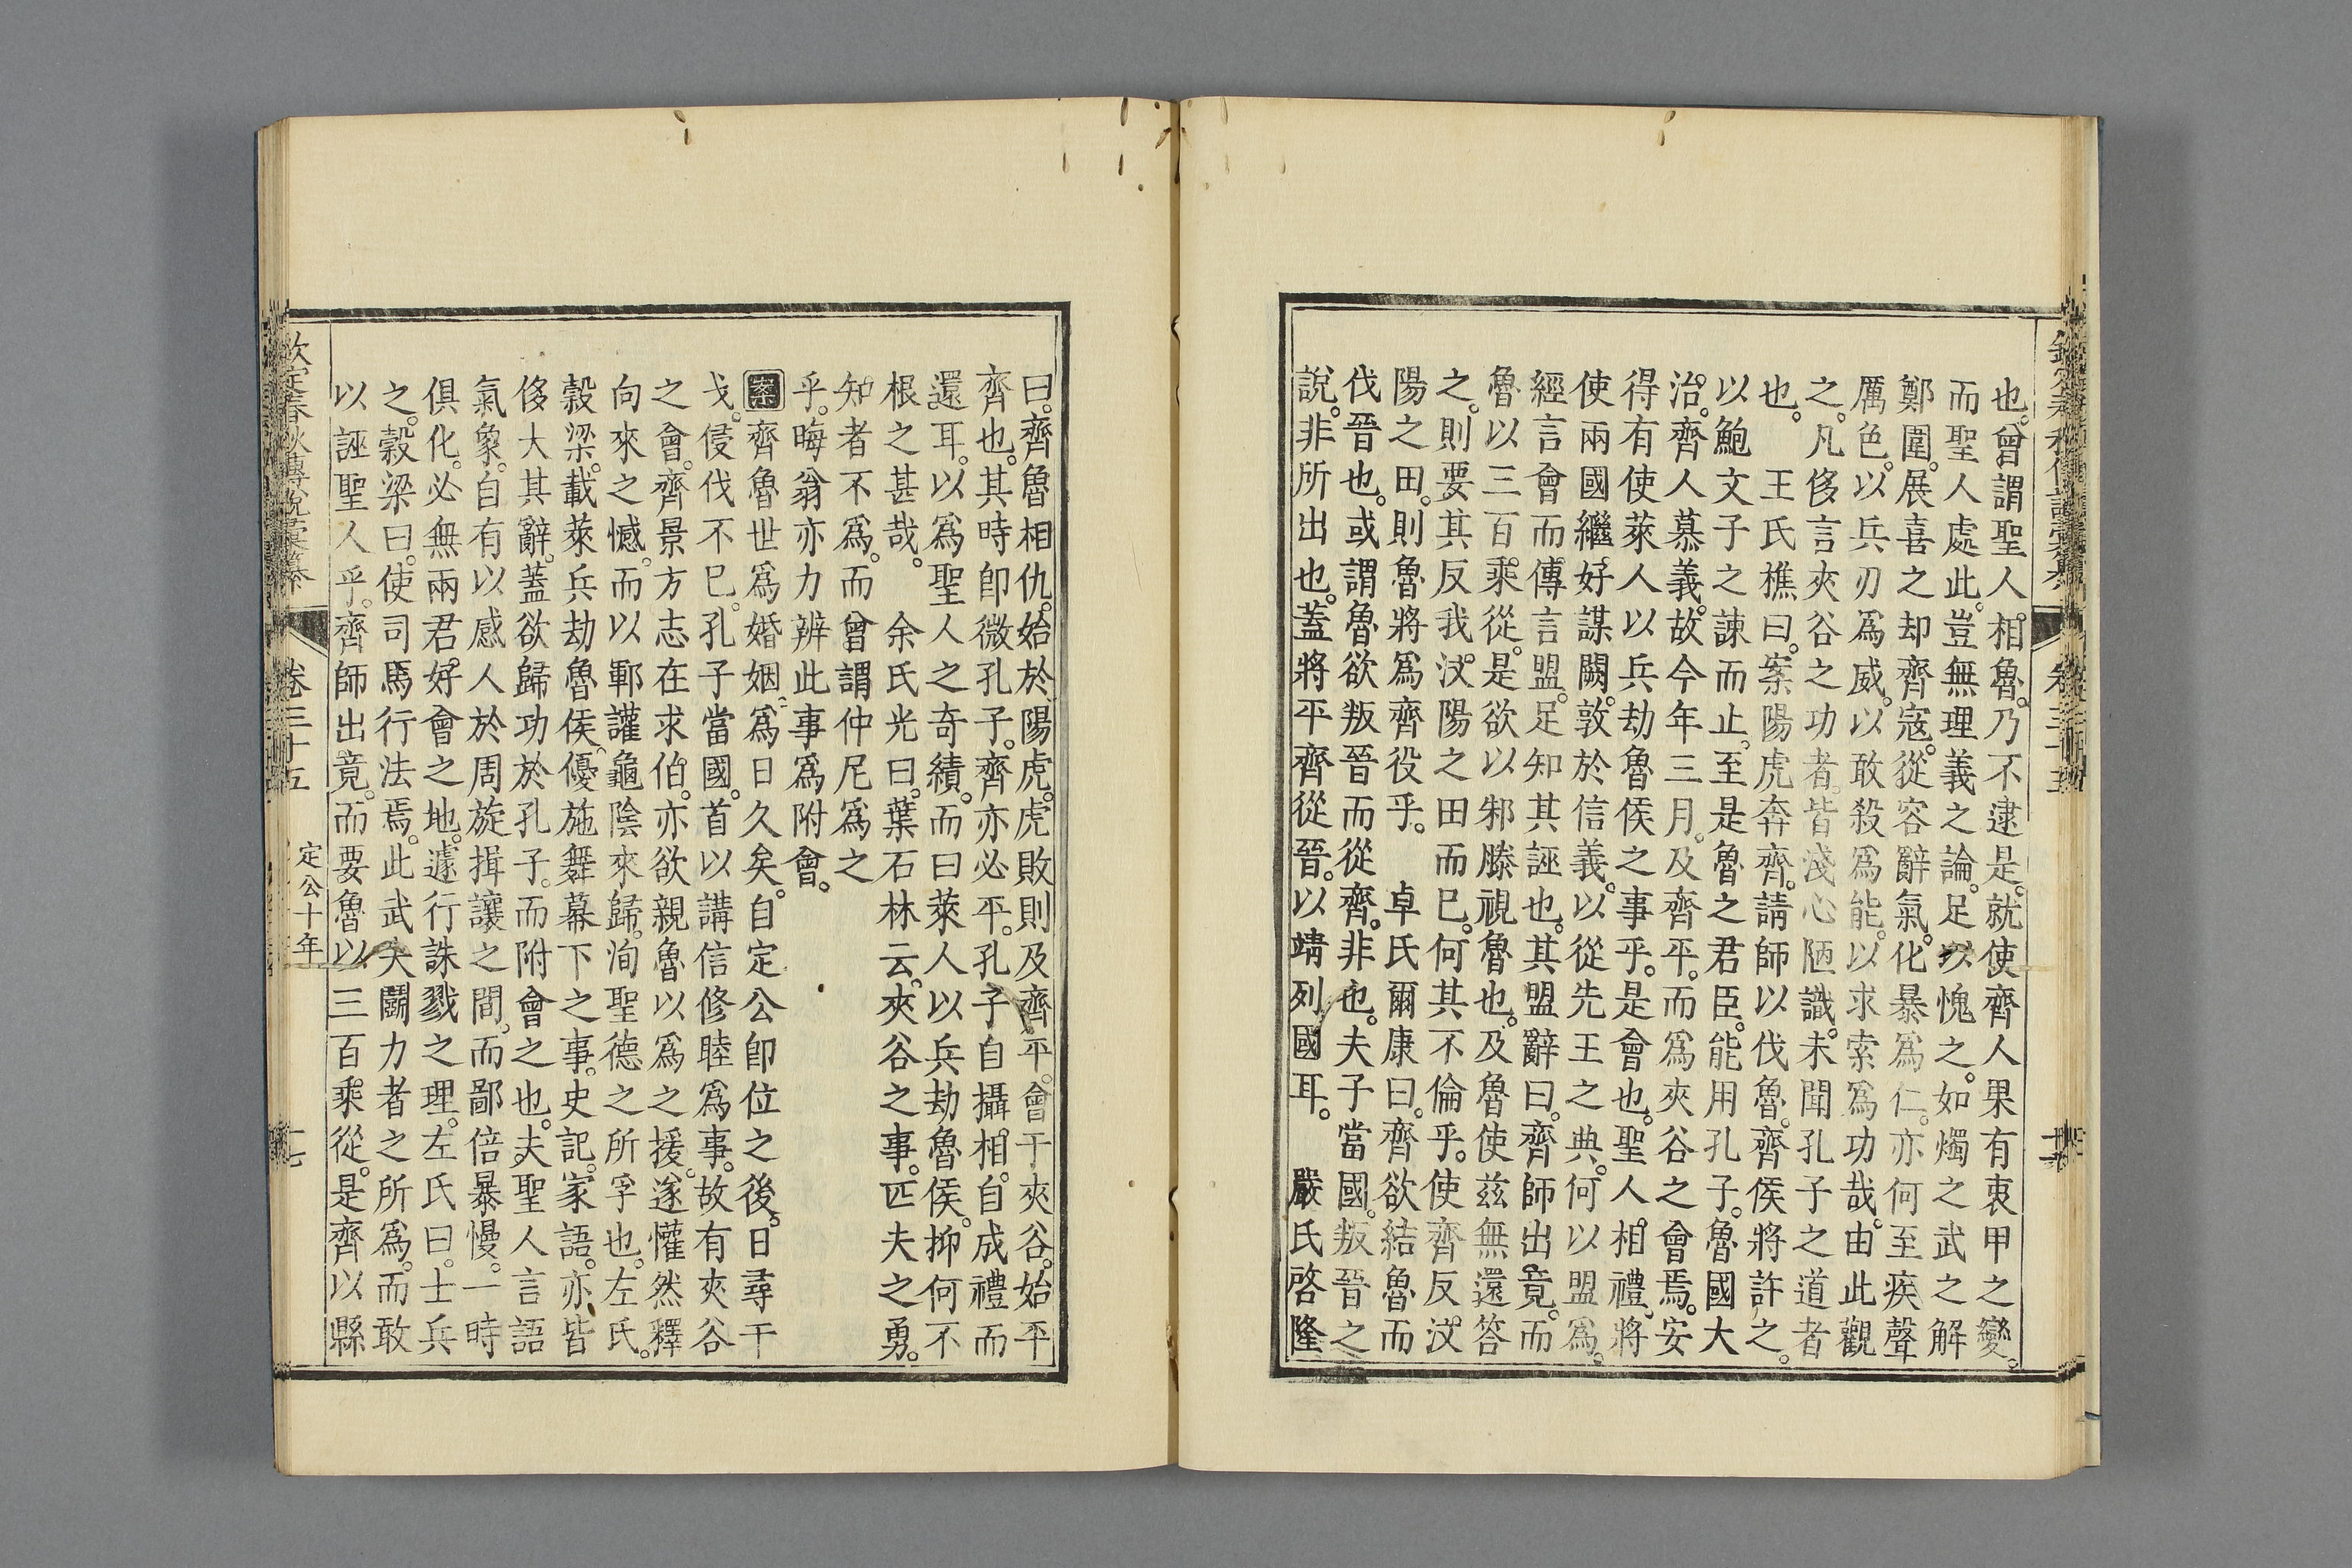 也。曾謂聖人相魯。乃不逮是。就使齊人果有衷甲之變。
而聖人處此。豈無理義之論。足以愧之。如燭之武之解
鄭圍。展喜之却齊寇。從容辭氣。化暴爲仁。亦何至疾聲
厲色。以兵刃爲威。以敢殺爲能。以求索爲功哉。由此觀
之。凡侈言夾谷之功者。皆淺心陋識。未聞孔子之道者
也。 王氏樵曰。案陽虎奔齊。請師以伐魯。齊侯將許之。
以鮑文子之諫而止。至是魯之君臣。能用孔子。魯國大
治。齊人慕義。故今年三月。及齊平。而爲夾谷之會焉。安
得有使萊人以兵劫魯侯之事乎。是會也。聖人相禮。將
使兩國繼好。謀闕。敦於信義。以從先王之典。何以盟爲。
經言會而傳言盟。足知其誣也。其盟辭曰。齊師出竟。而
魯以三百乘從。是欲以邾滕視魯也。及魯使茲無還答
之。則要其反我汶陽之田而已。何其不倫乎。使齊反汶
陽之田。則魯將爲齊役乎。 卓氏爾康曰。齊欲結魯而
伐晉也。或謂魯欲叛晉而從齊。非也。夫子當國。叛晉之
說。非所出也。蓋將平齊從晉。以靖列國耳。 嚴氏啓隆
曰。齊魯相仇。始於陽虎。虎敗則及齊平。會于夾谷。始平
齊也。其時卽微孔子。齊亦必平。孔子自攝相。自成禮而
還耳。以爲聖人之奇績。而曰萊人以兵劫魯侯。抑何不
根之甚哉。 余氏光曰。葉石林云。夾谷之事。匹夫之勇。
知者不爲。而曾謂仲尼爲之
乎。晦翁亦力辨此事爲附會。
案齊魯世爲婚姻。爲日久矣。自定公卽位之後。日尋干
戈。侵伐不已。孔子當國。首以講信修睦爲事。故有夾谷
之會。齊景方志在求伯。亦欲親魯以爲之援。遂懽然釋
向來之憾。而以鄆讙龜陰來歸。洵聖德之所孚也。左氏。
穀梁。載萊兵劫魯侯。優施舞幕下之事。史記。家語。亦皆
侈大其辭。蓋欲歸功於孔子。而附會之也。夫聖人言語
氣象。自有以感人於周旋揖讓之間。而鄙倍暴慢。一時
俱化。必無兩君好會之地。遽行誅戮之理。左氏曰。士兵
之。穀梁曰。使司馬行法焉。此武夫鬭力者之所爲。而敢
以誣聖人乎。齊師出竟。而要魯以三百乘從。是齊以縣
欽定春秋傳說彙纂 卷三十五 定公十年 十七